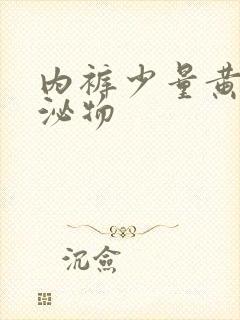 内裤少量黄
泌物
沉俭